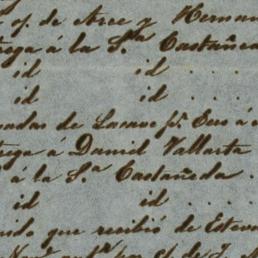 of. de Arce y Hernan
trega á la S.ra Castañeda
id id . . .
id id . . .
nadas de Lacave pr. Dros á
trega á Daniel Vallarta
á la S.ra Castañeda .
id id . . .
nido que recibió de Estev